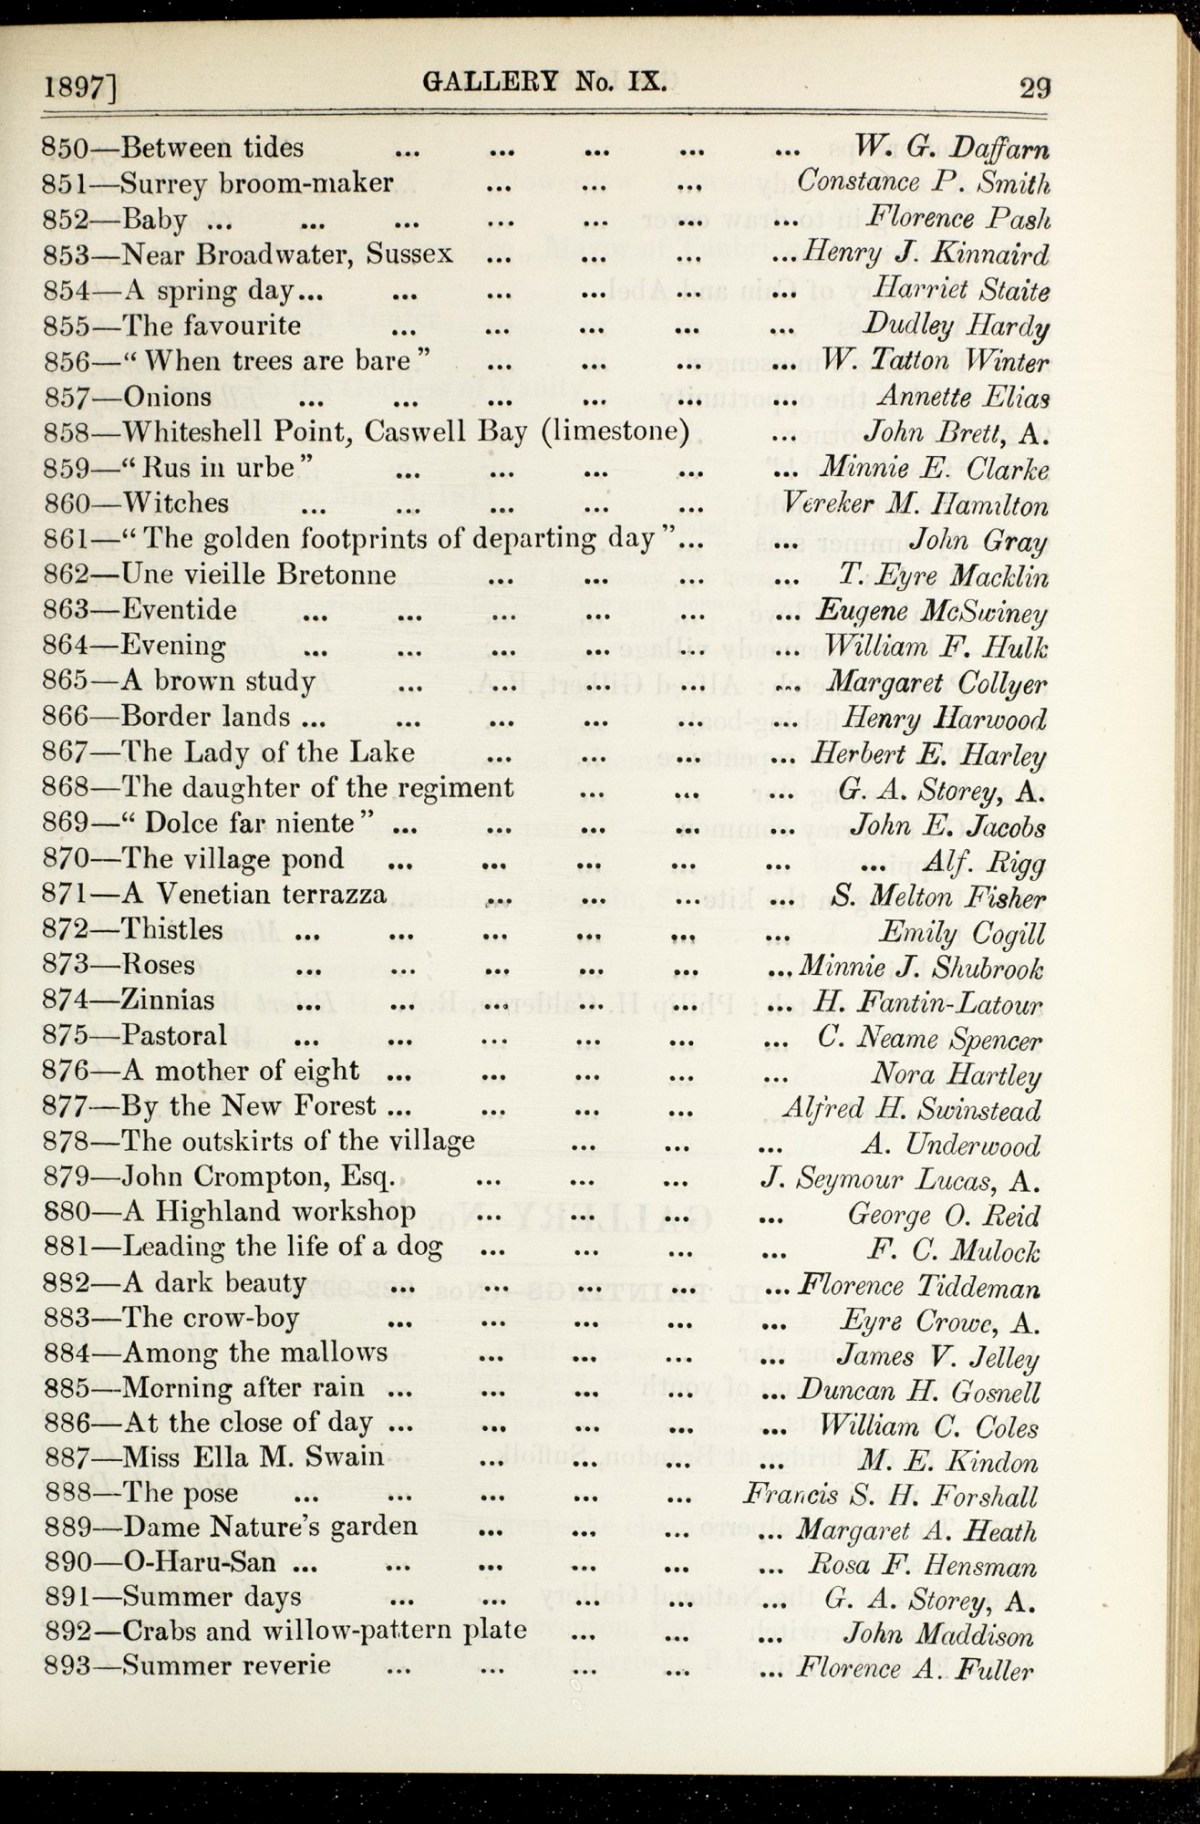 1897] GALLERY No. IX. 29
850—Between tides ... ... ... ... ... W. G. Daffarn
851—Surrey broom-maker ... ... ... Constance P. Smith
852—Baby ... ... ... ... ... ... ... Florence Pash
853—Near Broadwater, Sussex ... ... ... ... Henry J. Kinnaird
854—A spring day... ... ... ... ... ... Harriet Staite
855—The favourite ... ... ... ... ... Dudley Hardy
856—“When trees are bare” ... ... ... ... W. Tatton Winter
857—Onions ... ... ... ... ... ... Annette Elias
858—Whiteshell Point, Caswell Bay (limestone) ... John Brett, A.
859—“Rus in urbe” ... ... ... ... ... Minnie E. Clarke
860—Witches ... ... ... ... ... Vereker M. Hamilton
861—“The golden footprints of departing day”... ... John Gray
862—Une vieille Bretonne ... ... ... ... T. Eyre Macklin
863—Eventide ... ... ... ... ... ... Eugene McSwiney
864—Evening ... ... ... ... ... ... William F. Hulk
865—A brown study ... ... ... ... ... Margaret Collyer
866—Border lands ... ... ... ... ... ... Henry Harwood
867—The Lady of the Lake ... ... ... ... Herbert E. Harley
868—The daughter of the regiment ... ... ... G. A. Storey, A.
869—“Dolce far niente” ... ... ... ... ... John E. Jacobs
870—The village pond ... ... ... ... ... ... Alf. Rigg
871—A Venetian terrazza ... ... ... ... S. Melton Fisher
872—Thistles ... ... ... ... ... ... Emily Cogill
873—Roses ... ... ... ... ... ... Minnie J. Shubrook
874—Zinnias ... ... ... ... ... ... H. Fantin-Latour
875—Pastoral ... ... ... ... ... ... C. Neame Spencer
876—A mother of eight ... ... ... ... ... Nora Hartley
877—By the New Forest ... ... ... ... Alfred H. Swinstead
878—The outskirts of the village ... ... ... A. Underwood
879—John Crompton, Esq. ... ... ... J. Seymour Lucas, A.
880—A Highland workshop ... ... ... ... George O. Reid
881—Leading the life of a dog ... ... ... ... F. C. Mulock
882—A dark beauty ... ... ... ... ... Florence Tiddeman
883—The crow-boy ... ... ... ... ... Eyre Crowe, A.
884—Among the mallows ... ... ... ... James V. Jelley
885—Morning after rain ... ... ... ... ... Duncan H. Gosnell
886—At the close of day ... ... ... ... ... William C. Coles
887—Miss Ella M. Swain ... ... ... ... M. E. Kindon
888—The pose ... ... ... ... ... Francis S. H. Forshall
889—Dame Nature’s garden ... ... ... ... Margaret A. Heath
890—O-Haru-San ... ... ... ... ... ... Rosa F. Hensman
891—Summer days ... ... ... ... ... G. A. Storey, A.
892—Crabs and willow-pattern plate ... ... ... John Maddison
893—Summer reverie ... ... ... ... ... Florence A. Fuller